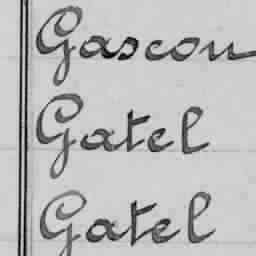 Gascou
Gatel
Gatel